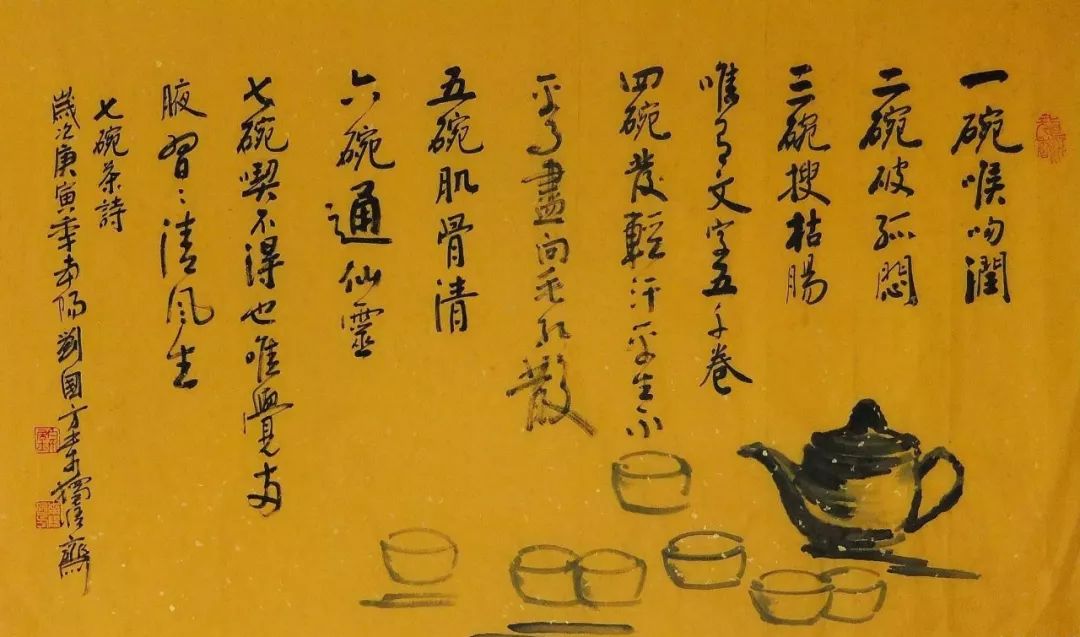 一碗喉吻潤
二碗破孤悶
三碗搜枯腸
唯有文字五千卷
四碗發輕汗平生不
平事盡向毛孔散
五碗肌骨清
六碗通仙靈
七碗喫不得也唯覺兩
腋習〻清風生
七碗茶詩
歲次庚寅年南陽劉國方書於獨齋